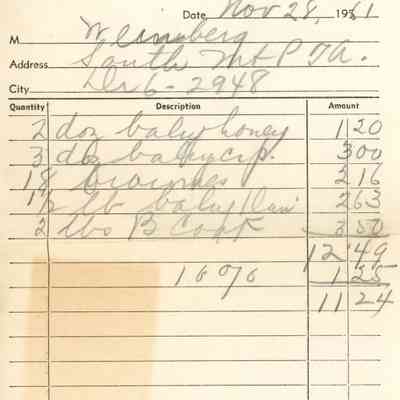 Date Nov 28, 1961
M Weinsberg
Address South Mt PTA.
City Dr 6-2948
Quantity Description Amount
2 doz baby honey 1 20
3 doz baby cup. 3 00
18 brownies 2 16
1½ lb baby 2 63
2 lbs B 3 50
12 49
10% 1 25
11 24